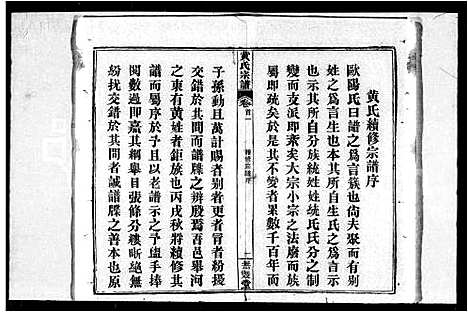 黃氏續修宗譜序
歐陽氏曰譜之爲言簇也尙夫聚而有别
姓之爲言生也本其所自生氏之爲言
示也示其所自分族統姓姓統氏氏分之制
變而支派卽乘矣大宗小宗之法廢而族
屬卽疏矣於是一其不變者累數千百年而
黃氏宗譜
卷首一
子孫動且萬計賜者别者更者冒者紛擾
交錯於其間而譜牒之辨殷焉吾邑畢河
之東有黃姓者鉅族也丙戌秋將續修其
譜而屬序於予以老譜示之予盥手捧
觀不數過卽嘉其綱張條分縷晰絕無
紛扰交錯於其間者誠譜牒之善本也原